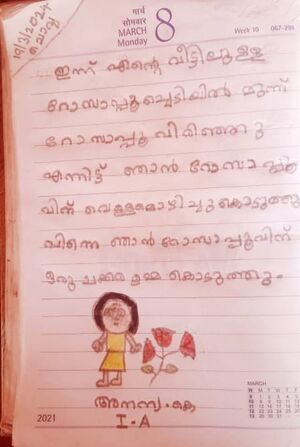 मार्च
सोमवार
MARCH
Monday
8
Week 10
067-298
19/3/2024
ചൊവ്വ
ഇന്ന് എന്റെ വീട്ടിലുള്ള
റോസാപ്പൂച്ചെടിയിൽ മൂന്ന്
റോസാപ്പൂ വിരിഞ്ഞു
എന്നിട്ട് ഞാൻ റോസാപ്പൂ
വിന് വെള്ളമൊഴിച്ചു കൊടുത്തു
പിന്നെ ഞാൻ റോസാപ്പൂവിന്
ഒരു ചക്കര ഉമ്മ കൊടുത്തു.
അനന്യ.കെ
I-A
2021
MARCH